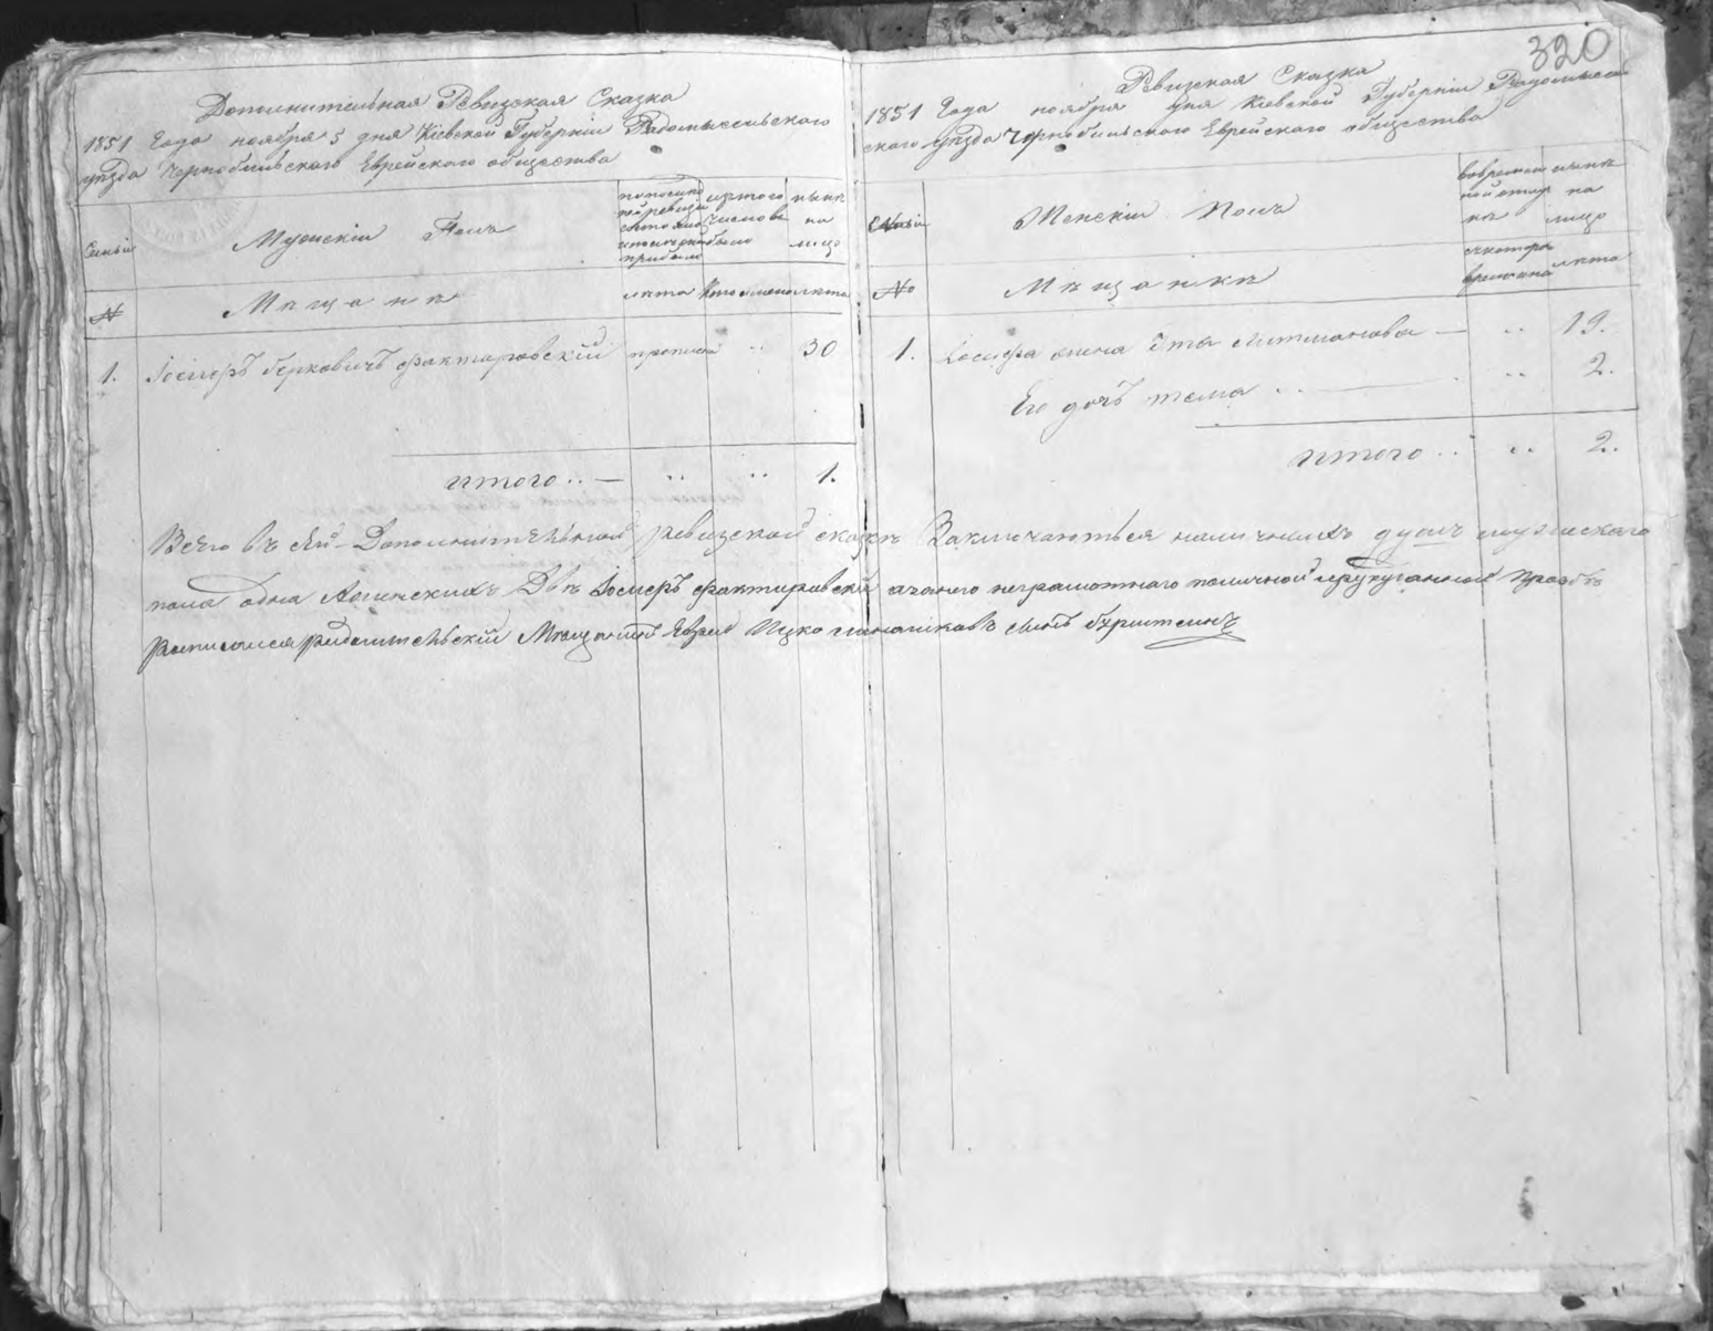 Дополнительная Ревизская Сказка
1851 Года ноября 5 дня Кіевской Губерніи Радомысльского
уѣзда Чернобыльского Еврейского общества
Семьи
Мужескій Полъ
по последней ревизіи состояло и после оной прибыло
изъ того числа выбыло
нынѣ на лицо
№
Мѣщанѣ
лѣта
лѣта
1. Іосифъ Берковичъ Фактаровскій прописной .. 30
итого .. — .. .. 1.
320
Ревизская Сказка
1851 Года ноября дня Кіевской Губерніи Радомысль
ского уѣзда Чернобыльского Еврейского общества
Семьи
Женскій Полъ
во временной отлучкѣ
нынѣ на лицо
№
Мѣщанкѣ
съ котораго времени
лѣта
1. Іосифа жена Эта Литманова — .. 19.
Его дочь тема .. — .. 2.
итого .. .. 2.
Всего въ сей Дополнительной ревизской сказкѣ Заключаються наличныхъ душъ мужеского
пола одна Аженскихъ Двѣ Іосифъ Фактаровскій азанего неграмотнаго поличной прозбѣ
Росписался Мѣщанинъ Еврей Ицко сынъ